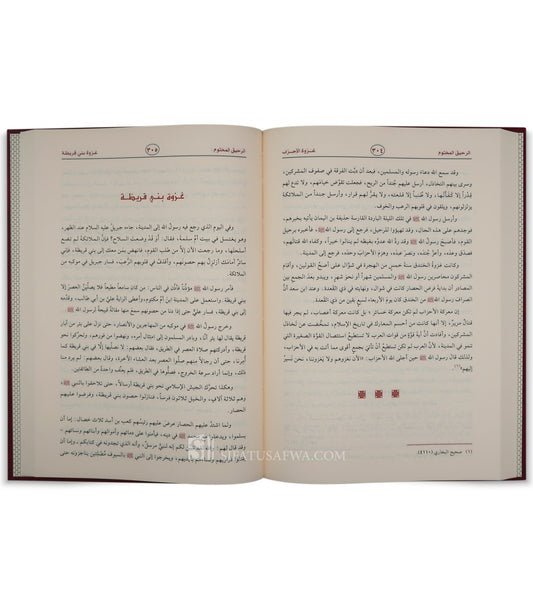 الرحيق المختوم
٣٠٤
غزوة الأحزاب
وقد سمع الله دعاء رسوله والمسلمين، فبعد أن دبَّت الفرقة في صفوف المشركين،
وسرى بينهم التخاذل، أرسل الله عليهم جُنداً من الريح، فجعلت تقوِّض خيامهم، ولا تدع لهم
قِدْراً إلا كَفَأتْها، ولا طُنباً إلا قلعته، ولا يقرُّ لهم قرار، وأرسل جنداً من الملائكة
يزلزلونهم، ويلقون في قلوبهم الرعب والخوف.
وأرسل رسول الله ﷺ في تلك الليلة الباردة القارسة حذيفة بن اليمان يأتيه بخبرهم،
فوجدهم على هذه الحال، وقد تهيؤوا للرحيل، فرجع إلى رسول الله ﷺ، فأخبره برحيل
القوم، فأصبح رسول الله ﷺ وقد ردَّ الله عدوه بغيظه لم ينالوا خيراً، وكفاه الله قتالهم،
فصدق وعده، وأعزَّ جنده، ونصر عبده، وهزم الأحزاب وحده، فرجع إلى المدينة.
وكانت غزوة الخندق سنة خمس من الهجرة في شوَّال على أصحِّ القولين، وأقام
المشركون محاصرين رسول الله ﷺ والمسلمين شهراً أو نحو شهر، ويبدو بعد الجمع بين
المصادر أن بداية فرض الحصار كانت في شوال، ونهايته في ذي القعدة. وعند ابن سعد أنَّ
انصراف رسول الله ﷺ من الخندق كان يوم الأربعاء لسبعٍ بقين من ذي القعدة.
إن معركة الأحزاب لم تكن معركة خسائر، بل كانت معركة أعصاب، لم يجرِ فيها
قتالٌ مريرٌ، إلا أنها كانت من أحسم المعارك في تاريخ الإسلام، تمخَّضت عن تخاذل
المشركين، وأفادت أنَّ أية قوَّة من قوات العرب لا تستطيع استئصال القوَّة الصغيرة التي
تنمو في المدينة، لأنَّ العرب لم تكن تستطيع أنْ تأتي بجمعٍ أقوى مما أتت به في الأحزاب،
ولذلك قال رسول الله ﷺ حين أجلى الله الأحزاب: «الآن نغزوهم ولا يغزوننا، نحن نسيرُ
إليهم»(١).
(١) صحيح البخاري (٤١١٠).
الرحيق المختوم
٣٠٥
غزوة بني قريظة
غزوة بني قريظة
وفي اليوم الذي رجع فيه رسول الله إلى المدينة، جاءه جبريل عليه السلام عند الظهر،
وهو يغتسل في بيت أمِّ سلمة، فقال: أوَ قدْ وضعت السلاح؟ فإنَّ الملائكة لم تضع
أسلحتها، وما رجعت الآن إلاَّ من طلب القوم، فانهض بمن معك إلى بني قريظة، فإني
سائرٌ أمامك أزلزلُ بهم حصونهم، وأقذف في قلوبهم الرُّعب، فسار جبريل في موكبه من
الملائكة.
فأمر رسول الله ﷺ مؤذِّناً فأذَّن في الناس: من كان سامعاً مطيعاً فلا يصلِّينَّ العصرَ إلا
ببني قريظة. واستعمل على المدينة ابنَ أمِّ مكتوم، وأعطى الراية عليَّ بن أبي طالب، وقدَّمه
إلى بني قريظة، فسار عليٌّ حتى إذا دنا من حصونهم سمع منها مقالةً قبيحةً لرسول الله ﷺ.
وخرج رسول الله ﷺ في موكبه من المهاجرين والأنصار، حتى نزل على بئرٍ من آبار
قريظة يقال لها بئر أنَّا. وبادر المسلمون إلى امتثال أمره، ونهضوا من فورهم، وتحرَّكوا نحو
قريظة، وأدركتهم صلاة العصر في الطريق، فقال بعضهم: لا نصلِّيها إلا في بني قريظة كما
أمرنا، حتى أن رجالاً منهم صلَّوا العصر بعد العشاء الآخرة، وقال بعضهم: لم يُرد منا
ذلك، وإنما أراد سرعة الخروج، فصلَّوها في الطريق، فلم يعنِّف واحدةً من الطائفتين.
وهكذا تحرَّك الجيش الإسلامي نحو بني قريظة أرسالاً، حتى تلاحقوا بالنبي ﷺ
وهم ثلاثة آلافٍ، والخيل ثلاثون فرساً، فنازلوا حصون بني قريظة، وفرضوا عليهم
الحصار.
ولما اشتدَّ عليهم الحصار عرض عليهم رئيسُهم كعب بن أسد ثلاث خصال: إما أن
يسلموا، ويدخلوا مع محمد ﷺ في دينه، فيأمنوا على دمائهم وأموالهم وأبنائهم ونسائهم،
وقد قال لهم: والله، لقد تبيَّن لكم إنه لنبيٌّ مرسلٌ، وأنه الذي تجدونه في كتابكم، وإما أن
يقتلوا ذراريهم ونساءهم بأيديهم، ويخرجوا إلى النبي ﷺ بالسيوف مُصْلِتين يناجزونه حتى
SIFATUSAFWA.COM